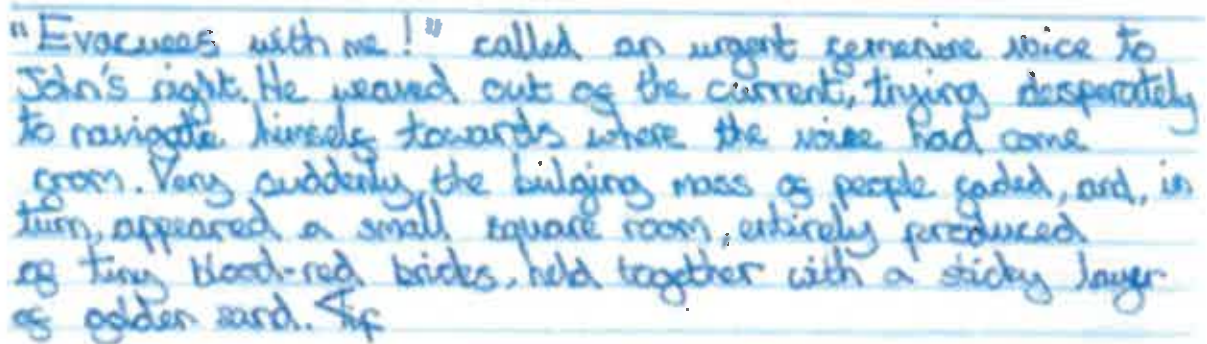 "Evacuees with me!" called an urgent femenine voice to
John's right. He weaved out of the current, trying desperately
to navigate himself towards where the voice had come
from. Very suddenly, the bulging mass of people faded, and, in
turn, appeared a small square room, entirely produced
of tiny blood-red bricks, held together with a sticky layer
of golden sand.